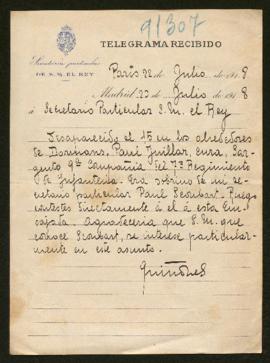 91307
TELEGRAMA RECIBIDO
Secretaría particular
DE S. M. EL REY
París 22 de Julio de 1918
Madrid 23 de Julio de 1918
á Secretario Particular S.M. el Rey
Desaparecido el 15 en los alrededores
de Dormans, Paul Juillar, cura, Sar-
gento 9ª Compañia del 73 Regimiento
de Infanteria. Era sobrino de mi se-
cretario particular Paul Ruego
contestes directamente á él á esta Em-
bajada. Agradeceria que S.M. que
conoce se interese particular-
mente en este asunto.
Quiñones